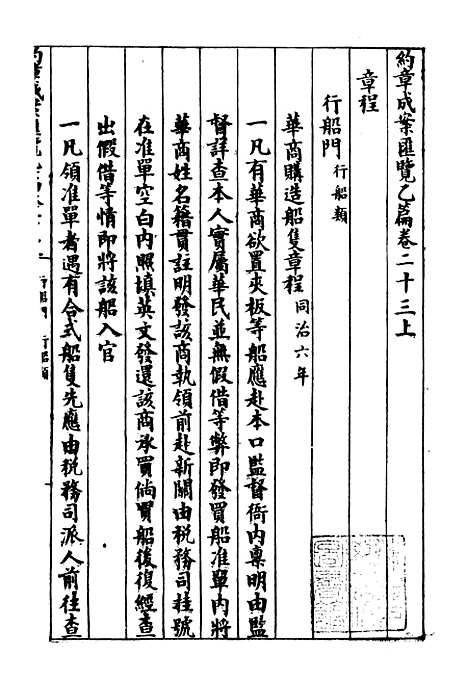 約章成案匯覽乙篇卷二十三上
章程
行船門 行船類
華商購造船隻章程 同治六年
一凡有華商欲置夾板等船應赴本口監督衙內稟明由監
督詳查本人實屬華民並無假借等弊即發買船准單內將
華商姓名籍貫註明發該商執領前赴新關由稅務司挂號
在准單空白內照填英文發還該商承買倘買船後復經查
出假借等情即將該船入官
一凡領准單者遇有合式船隻先應由稅務司派人前往查
行船門 行船類